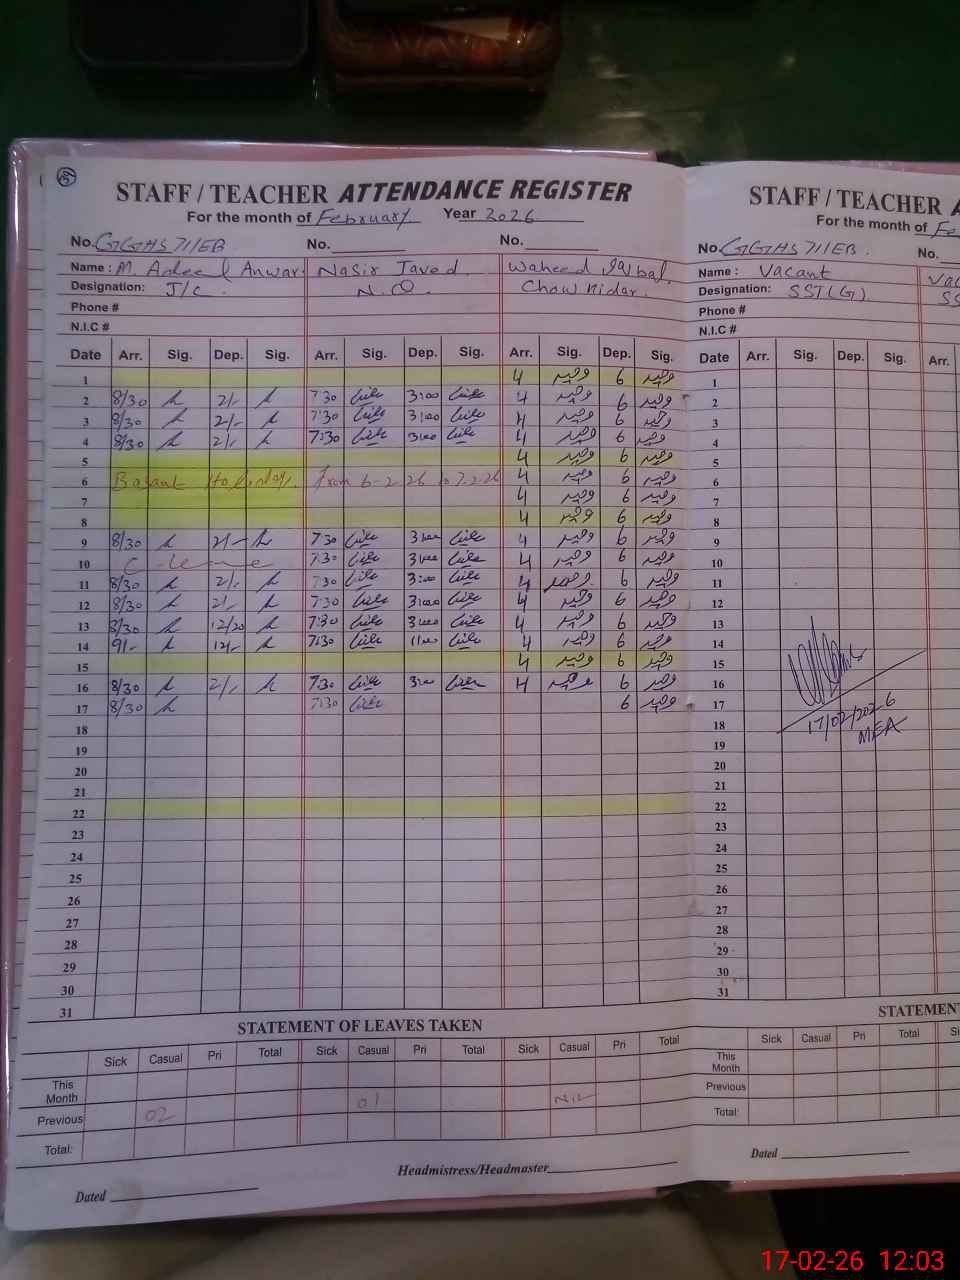 5
STAFF / TEACHER ATTENDANCE REGISTER
For the month of February Year 2026
No. GGHS 711EB No. No.
Name : M. Adeel Anwar Nasir Javed Waheed Iqbal
Designation: J/C N.Q Chowkidar
Phone #
N.I.C #
Date Arr. Sig. Dep. Sig. Arr. Sig. Dep. Sig. Arr. Sig. Dep. Sig.
1 4 وحید 6 وحید
2 8/30 2/- 7:30 3:00 4 وحید 6 وحید
3 8/30 2/- 7:30 3:00 4 وحید 6 وحید
4 8/30 2/- 7:30 3:00 4 وحید 6 وحید
5 4 وحید 6 وحید
6 Basant Holiday. From 6-2-26 to 7-2-26 4 وحید 6 وحید
7 4 وحید 6 وحید
8 4 وحید 6 وحید
9 8/30 2/- 7:30 3:00 4 وحید 6 وحید
10 C-leave 7:30 3:00 4 وحید 6 وحید
11 8/30 2/- 7:30 3:00 4 وحید 6 وحید
12 8/30 2/- 7:30 3:00 4 وحید 6 وحید
13 8/30 12/20 7:30 3:00 4 وحید 6 وحید
14 9/- 12/- 7:30 11:00 4 وحید 6 وحید
15 4 وحید 6 وحید
16 8/30 2/- 7:30 3:00 4 وحید 6 وحید
17 8/30 7:30 6 وحید
18
19
20
21
22
23
24
25
26
27
28
29
30
31
STATEMENT OF LEAVES TAKEN
Sick Casual Pri Total Sick Casual Pri Total Sick Casual Pri Total
This Month
Previous 02 01 Nil
Total:
Headmistress/Headmaster
Dated
STAFF / TEACHER A
For the month of Fe
No. GGHS 711EB. No.
Name : Vacant Vac
Designation: SST(G) SS
Phone #
N.I.C #
Date Arr. Sig. Dep. Sig. Arr.
1
2
3
4
5
6
7
8
9
10
11
12
13
14
15
16
17
18
17/02/2026
MEA
19
20
21
22
23
24
25
26
27
28
29
30
31
STATEMENT
Sick Casual Pri Total Si
This Month
Previous
Total:
Dated
17-02-26 12:03